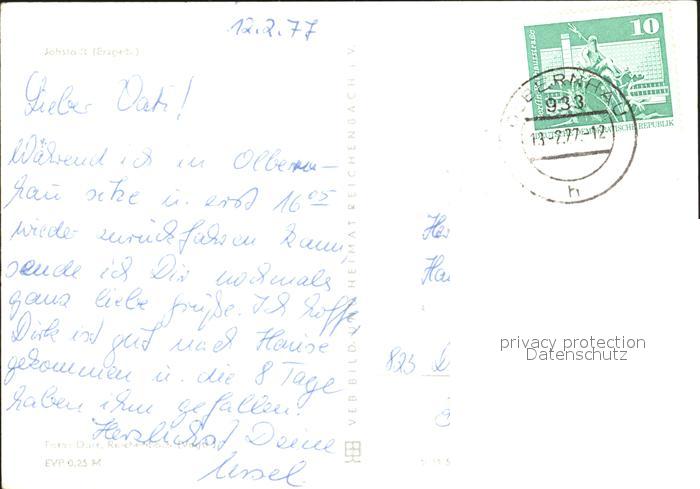 12.2.77
Jöhstadt (Erzgeb.)
Lieber Vati!
Während ich in Olbern-
hau sitze u. erst 16 05
wieder zurückfahren kann,
sende ich Dir nochmals
ganz liebe Grüße. Ich hoffe,
Dirk ist gut nach Hause
gekommen u. die 8 Tage
haben ihm gefallen!
Herzlichst Deine
Ursel.
EVP 0,25 M
VEB BILD HEIMAT REICHENBACH I. V.
10
DEUTSCHE DEMOKRATISCHE REPUBLIK
OLBERNHAU
933
13.-2.77.-12
h
Her
Hau
825 D
privacy protection
Datenschutz